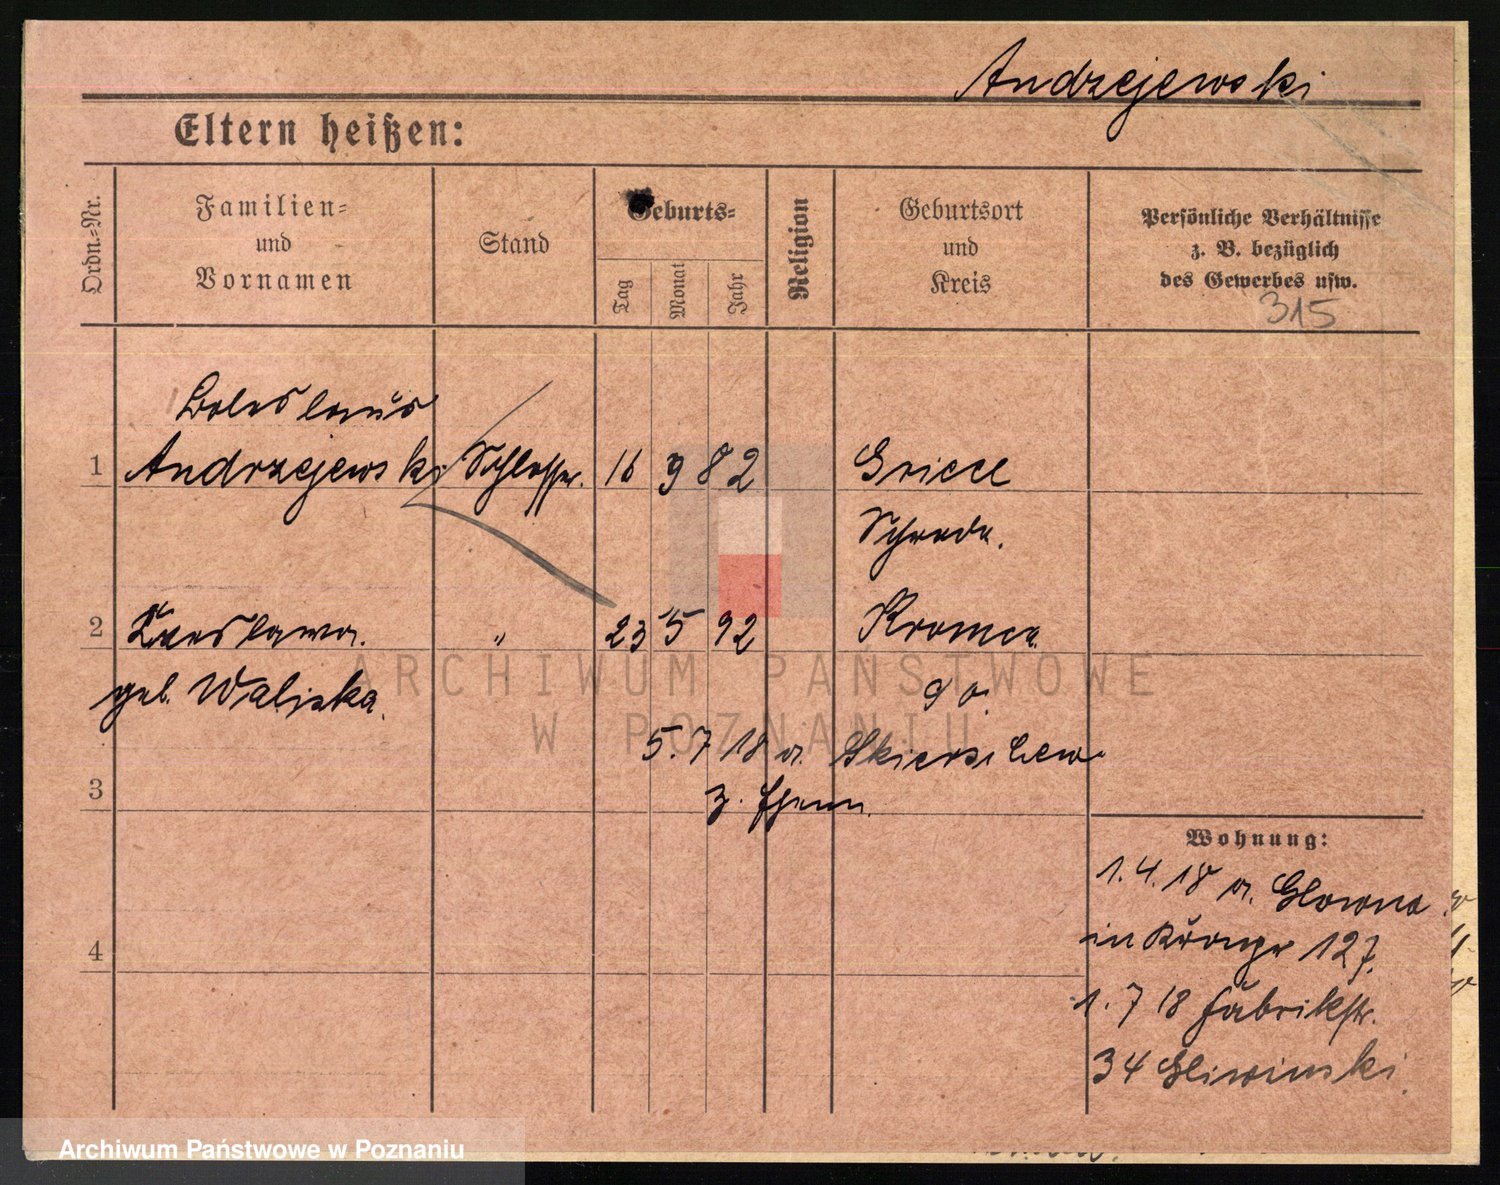 Andrzejewski
Eltern heißen:
Ordn.-Nr.
Familien-
und
Vornamen
Stand
Geburts-
Tag
Monat
Jahr
Religion
Geburtsort
und
Kreis
Persönliche Verhältnisse
z. B. bezüglich
des Gewerbes usw.
315
Boleslaus
1 Andrzejewski Schlosser. 16 9 82
Schroda.
2 Czeslawa. " 23 5 92 Kromca.
geb. Waliszka. do.
5.7 18 a.
3 z. Ehem.
Wohnung:
1.4.18 a. Glowno
in 127.
4
1.7 18 Fabrikstr.
34 Sliwinski
ARCHIWUM PAŃSTWOWE
W POZNANIU
Archiwum Państwowe w Poznaniu